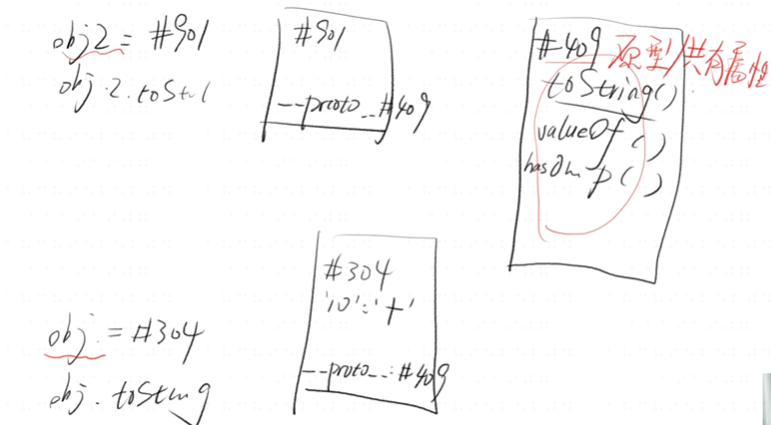 obj2 = #901
obj.2.toSt
#901
--proto--#409
#409 原型/共有属性
toString()
valueOf()
hasOwnp()
obj = #304
obj.toString
#304
'10':'+'
--proto--:#409